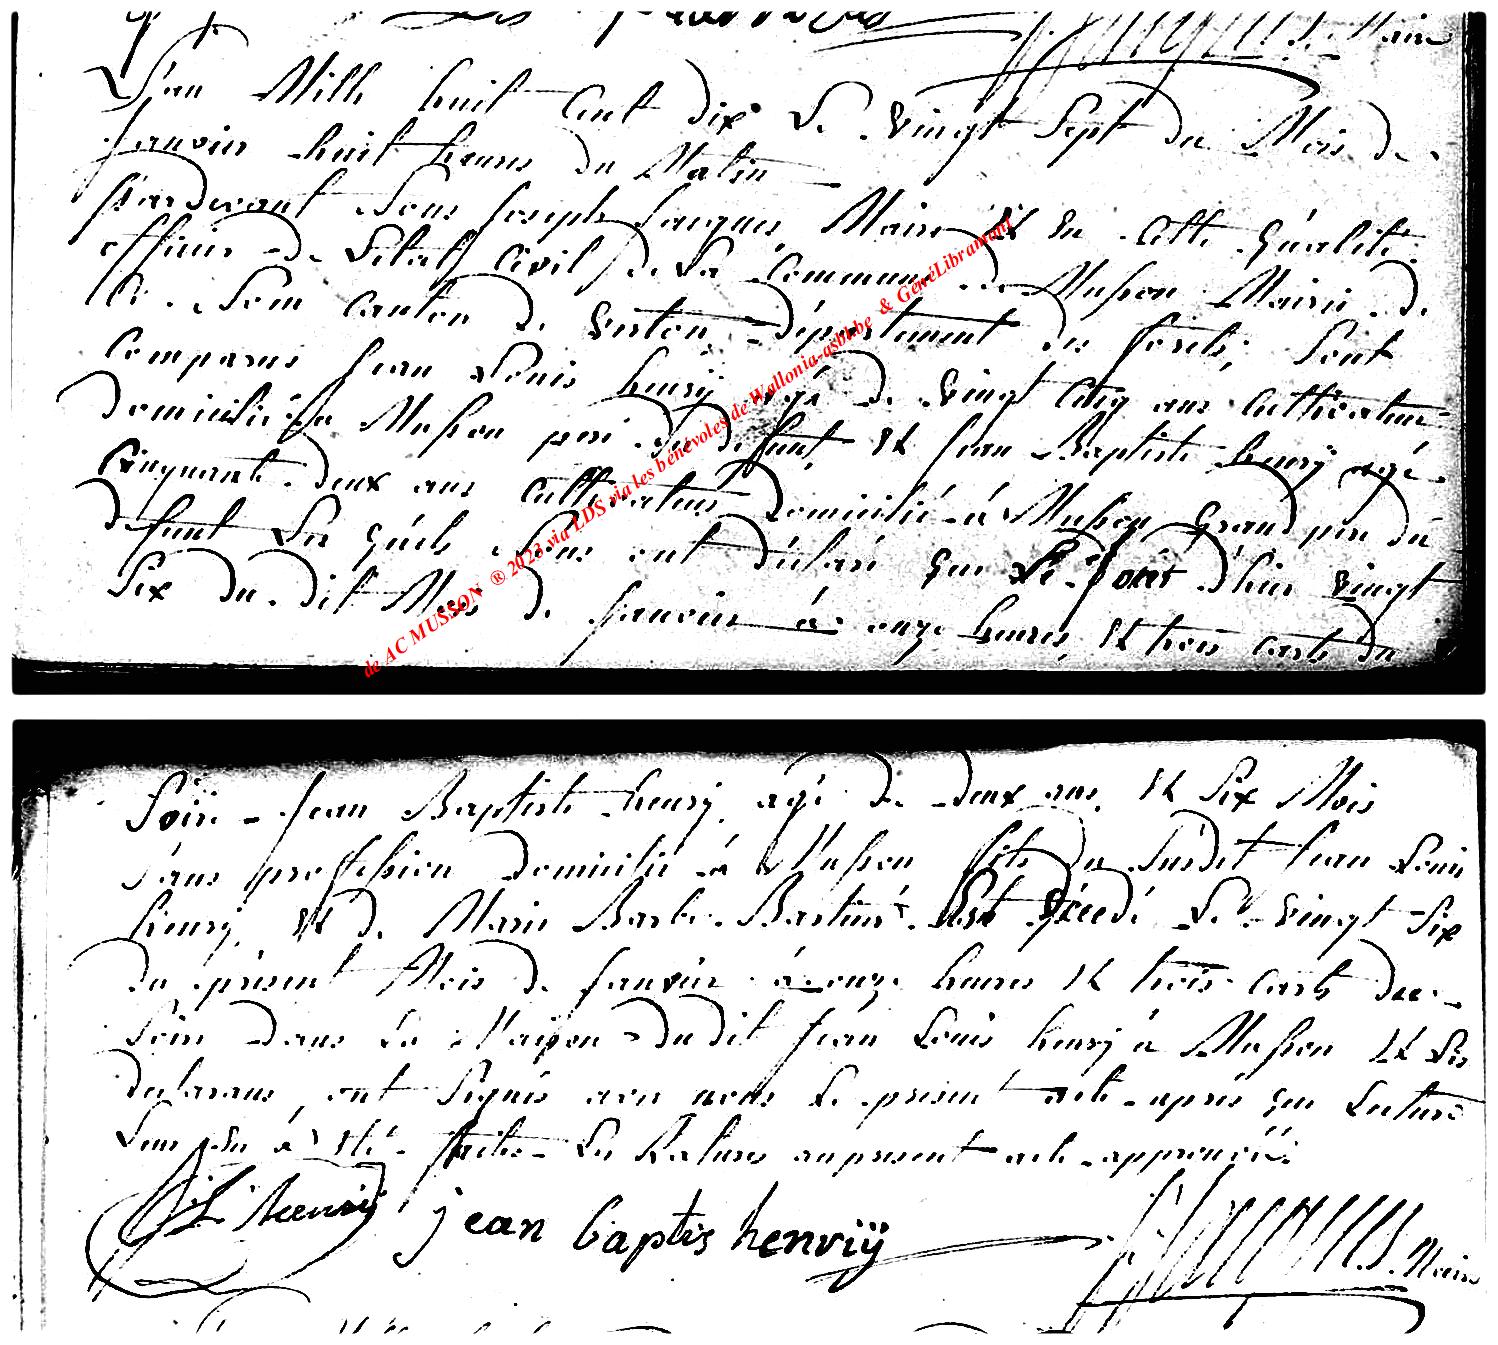 L'an Mille huit Cent dix Le vingt Sept du Mois de
Janvier huit heures du Matin
Pardevant Nous Joseph Jacques, Maire Et En Cette Qualité
officier de L'etat Civil de La Commune de Musson Mairie de
Ce Nom Canton de Virton département des forêts, Sont
Comparus Jean Louis henrÿ agé de vingt Cinq ans Cultivateur
domicilié à Musson pere du défunt, Et Jean Baptiste henrÿ agé
Cinquante deux ans Cultivateur domicilié à Musson Grand pere du
défunt Les Quels Nous ont déclaré que Le Jour d'hier vingt
Six du dit Mois de Janvier à onze heures, Et trois Carts du
Soire Jean Baptiste henrÿ, agé de deux ans, Et Six Mois
Sans profession domicilié à Musson fils du Susdit Jean Louis
henrÿ, Et de Marie Barbe Est décédé Le vingt Six
du présent Mois de Janvier à onze heures Et trois Carts du
Soire dans La Maison du dit Jean Louis henrÿ à Musson Et Les
declarans, ont Signés avec nous Le présent acte après que Lecture
Leur En à Eté faite Les Ratures au present acte approuvéé
J L henrÿ jean baptis henriÿ Maire
de AC MUSSON ® 2023 via LDS via les bénévoles de Wallonia-asbl.be & GénéLibramont